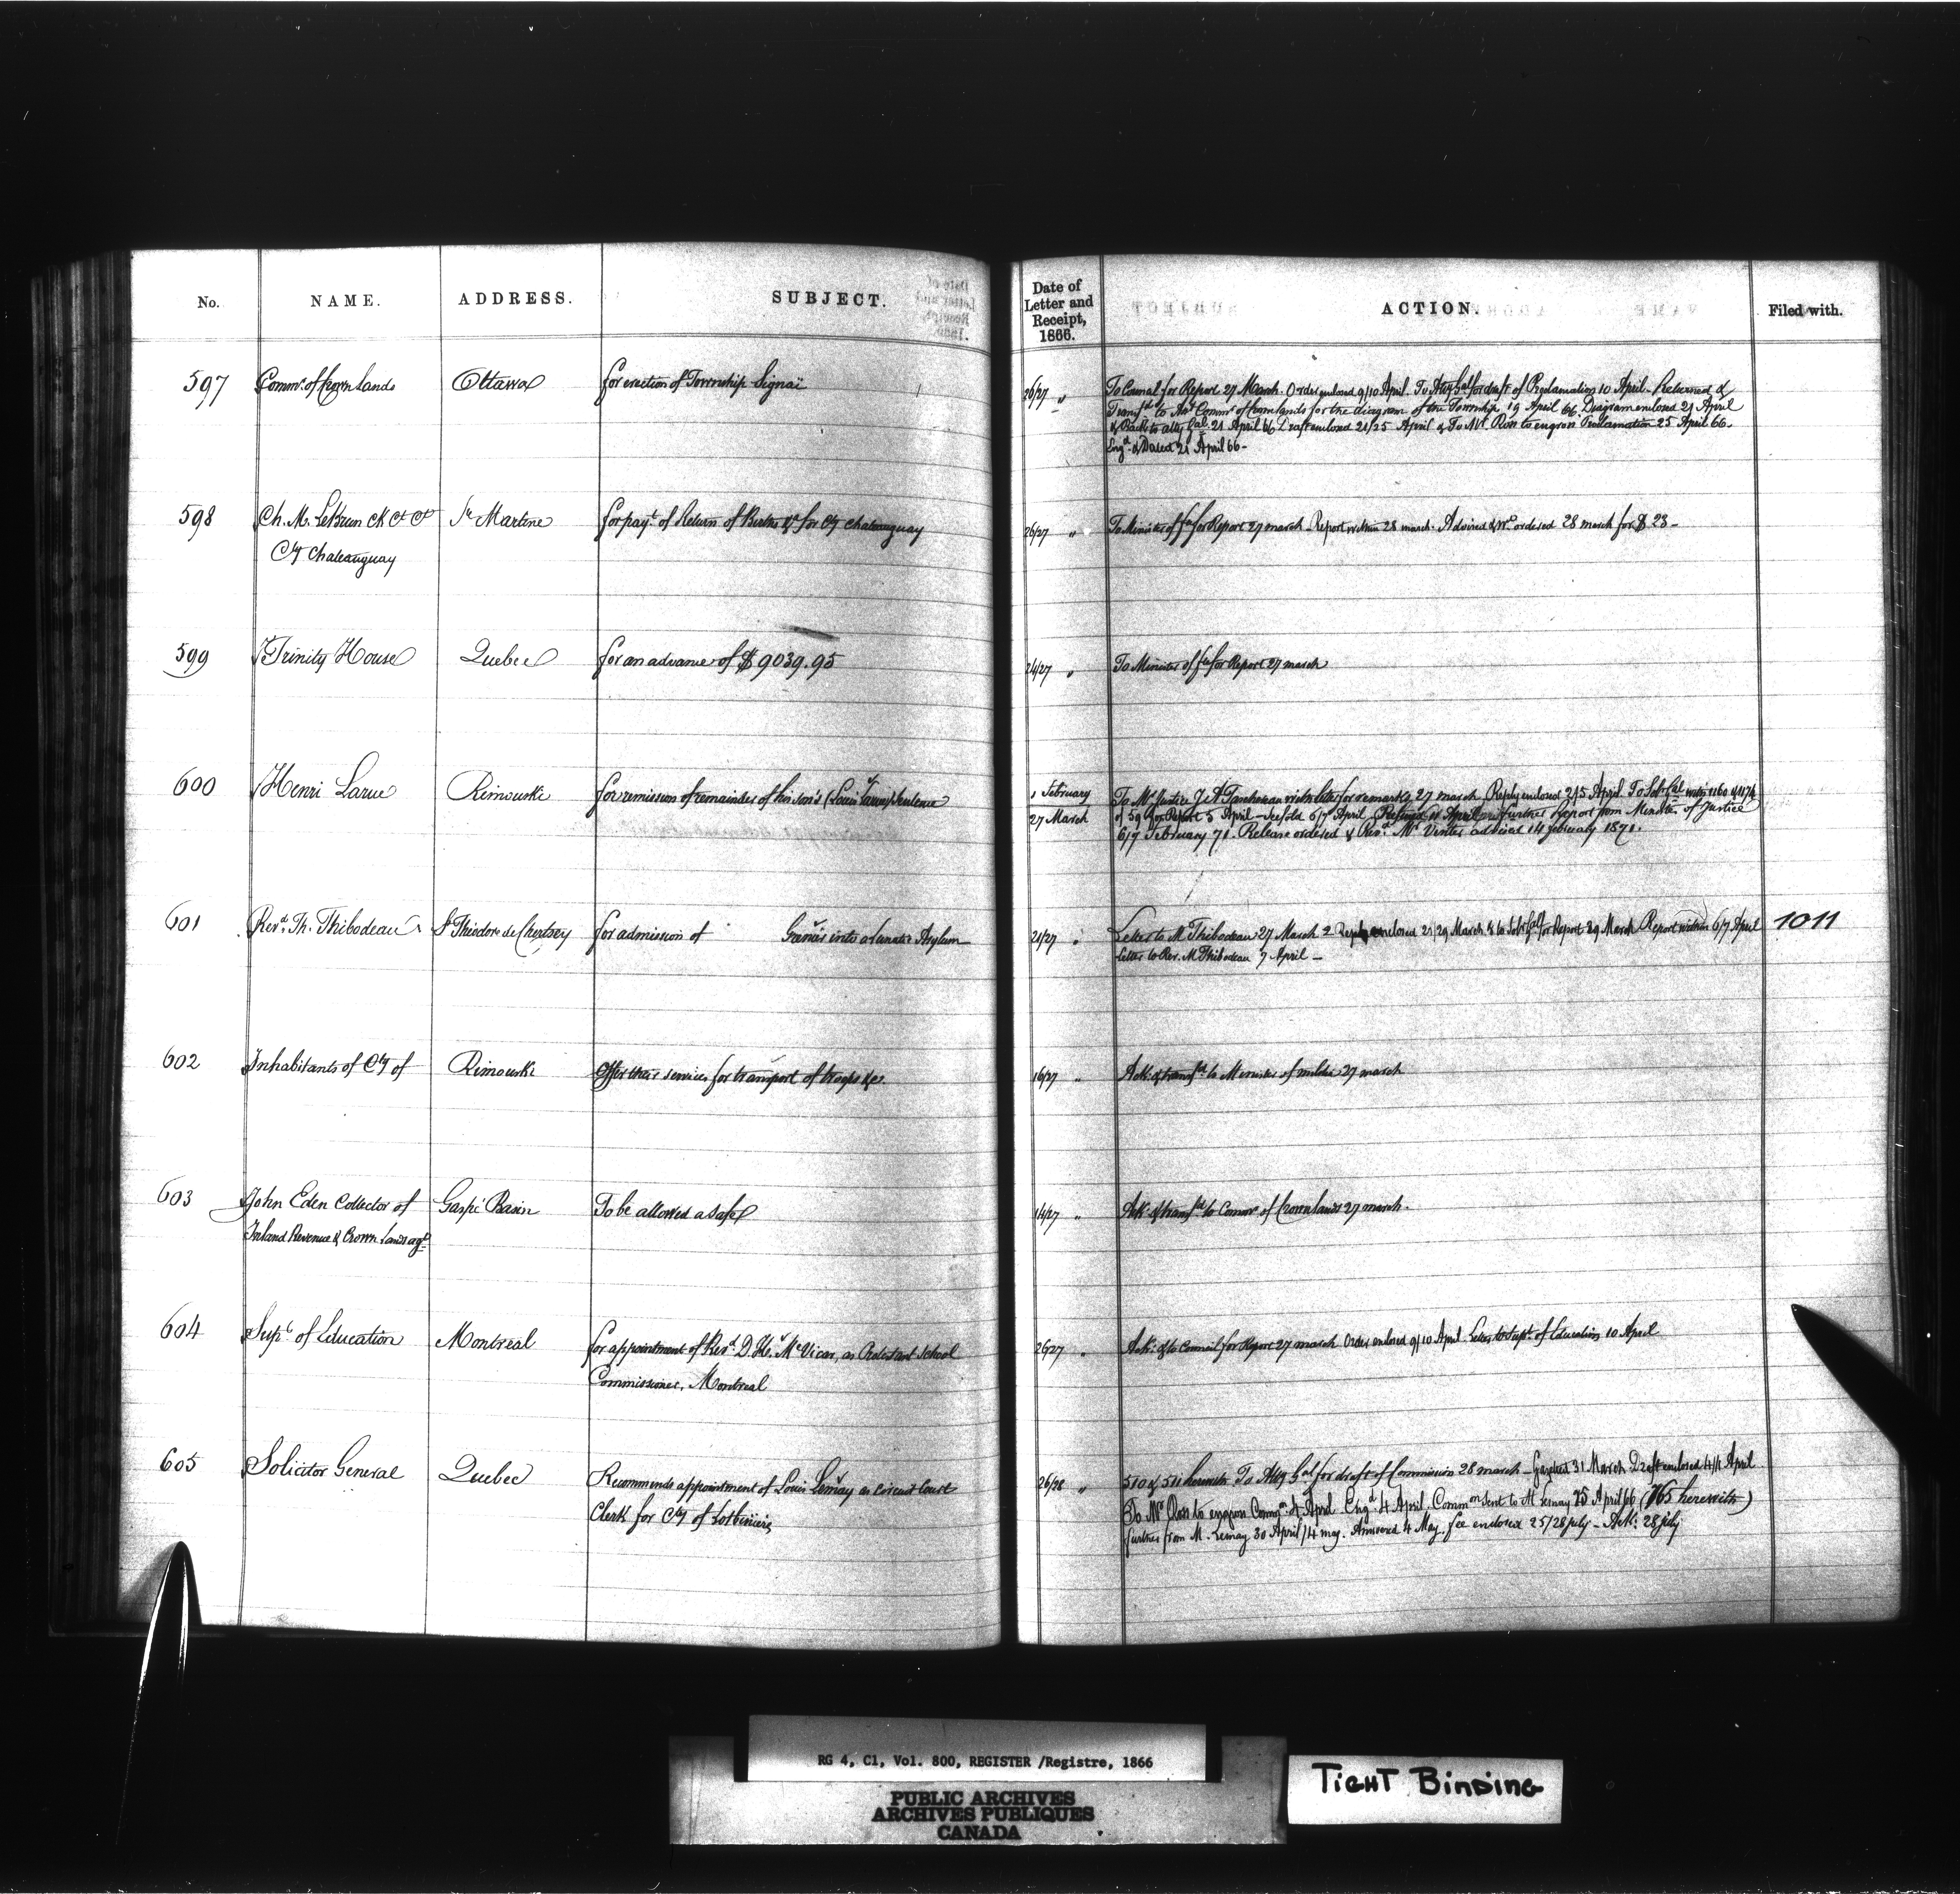 No. NAME. ADDRESS. SUBJECT.
Date of
Letter and
Receipt,
1866.
ACTION. Filed with.
597 Commr. of Crown Lands Ottawa for erection of Township Signaï
26/27 " To Council for Report 27 March. Order enclosed 9/10 April. To Atty Gal for draft of Proclamation 10 April. Returned &
Transfd to Asst Commr of Crown lands for the diagram of the Township 19 April 66. Diagram enclosed 21 April
& Back to atty Gal. 21 April 66 Draft enclosed 21/25 April & To Mr. Ross to engross Proclamation 25 April 66.
Engd & Dated 21 April 66-
598 Ch. M. LeBrun Ste Martine for payt. of Return of Births &c for Cty Chateauguay
Cty Chateauguay
26/27 " To Minister of fce for Report 27 march - Report within 28 march. Advised & Wt ordered 28 march for $ 23-
599 Trinity House Quebec for an advance of $9039.95
24/27 " To Minister of fce for Report 27 march
600 Henri Larue Rimouski for remission of remainder of his son's (Louis Larue) sentence
1 February
27 March
To Mr Justice J. A Taschereau with letter for remarks 27 march. Reply enclosed 2/5 April. To Solr Gal with 1160 & 1174
of 59 for Report 5 April - 6/7 April. Refused 11 April Further Report from Minister of Justice
6/7 February 71. Release ordered & Revd. Mr advised 14 february 1871.
601 Revd. Th. Thibodeau St Théodore de Chertsey for admission of into a Lunatic Asylum
21/27 " Letter to M Thibodeau 27 March 2 Reply enclosed 21/29 March & to Solr Gal for Report 29 March Report within 6/7 April 1011
Letter to Rev. M Thibodeau 7 April -
602 Inhabitants of Cty of Rimouski Offer their services for transport of troops &c.
16/27 " Ack. & transfd to Minister of militia 27 march
603 John Eden Collector of Gaspé Basin To be allowed a safe
Inland Revenue & Crown Lands agt
14/27 " Ack. & transfd to Commr of Crown lands 27 march.
604 Supt. of Education Montreal for appointment of Revd. D. H. McVicar, as Protestant School
Commissioner, Montreal
26/27 " Ack: & to Council for Report 27 march Order enclosed 9/10 April. Letter to Supt. of Education 10 April
605 Solicitor General Quebec Recommends appointment of Louis Lemay as circuit Court
Clerk for Cty of Lotbinière
26/28 " 510 & 511 herewith To Atty Gal for draft of Commission 28 march - Gazetted 31 March Draft enclosed 4/4 April
To Mr Ross to engross Commn. 4 April Engd 4 April. Commn sent to M Lemay 25 April 66 (765 herewith)
further from M. Lemay 30 April/4 may. Answered 4 May. fee enclosed 25/28 july - Ack: 28 july
RG 4, C1, Vol. 800, REGISTER /Registre, 1866
PUBLIC ARCHIVES
ARCHIVES PUBLIQUES
CANADA
TIGHT BINDING